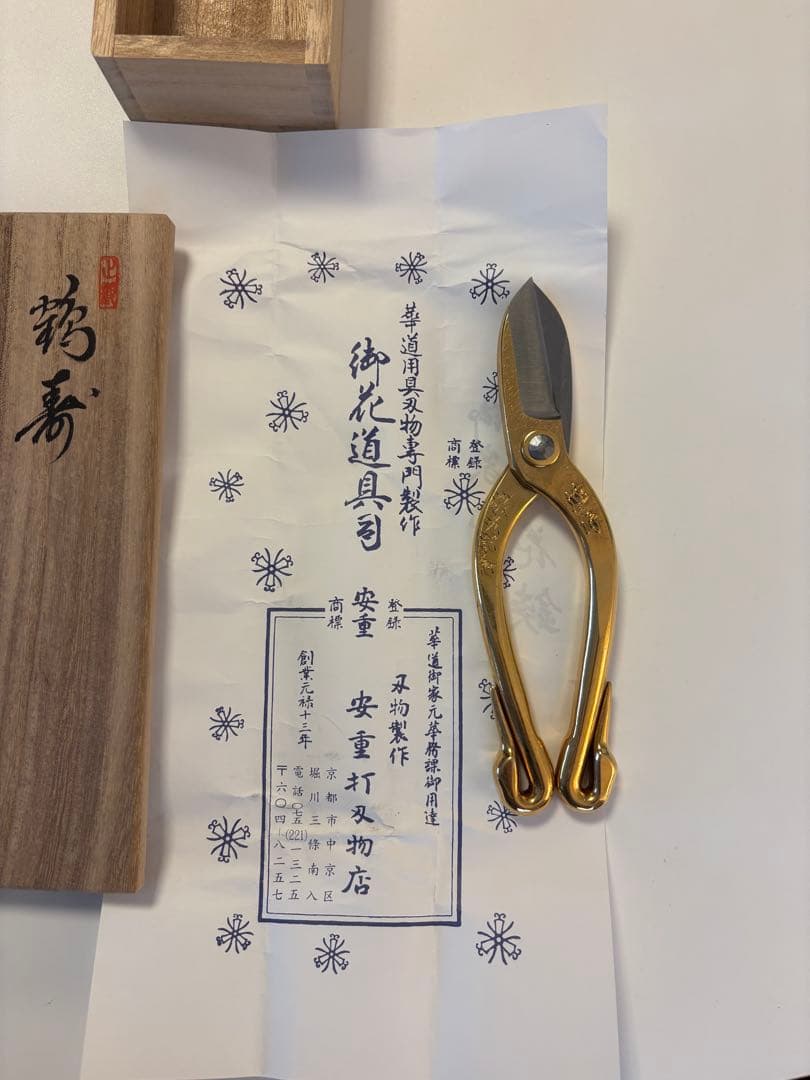 鶴寿
華道用具刃物専門製作
御花道具司
登録
商標
登録
安重
商標
華道御家元華務課御用達
刃物製作
安重打刃物店
創業元禄十三年
京都市中京区
堀川三條南入
電話〇七五(221)一三二五
〒六〇四-八二五七